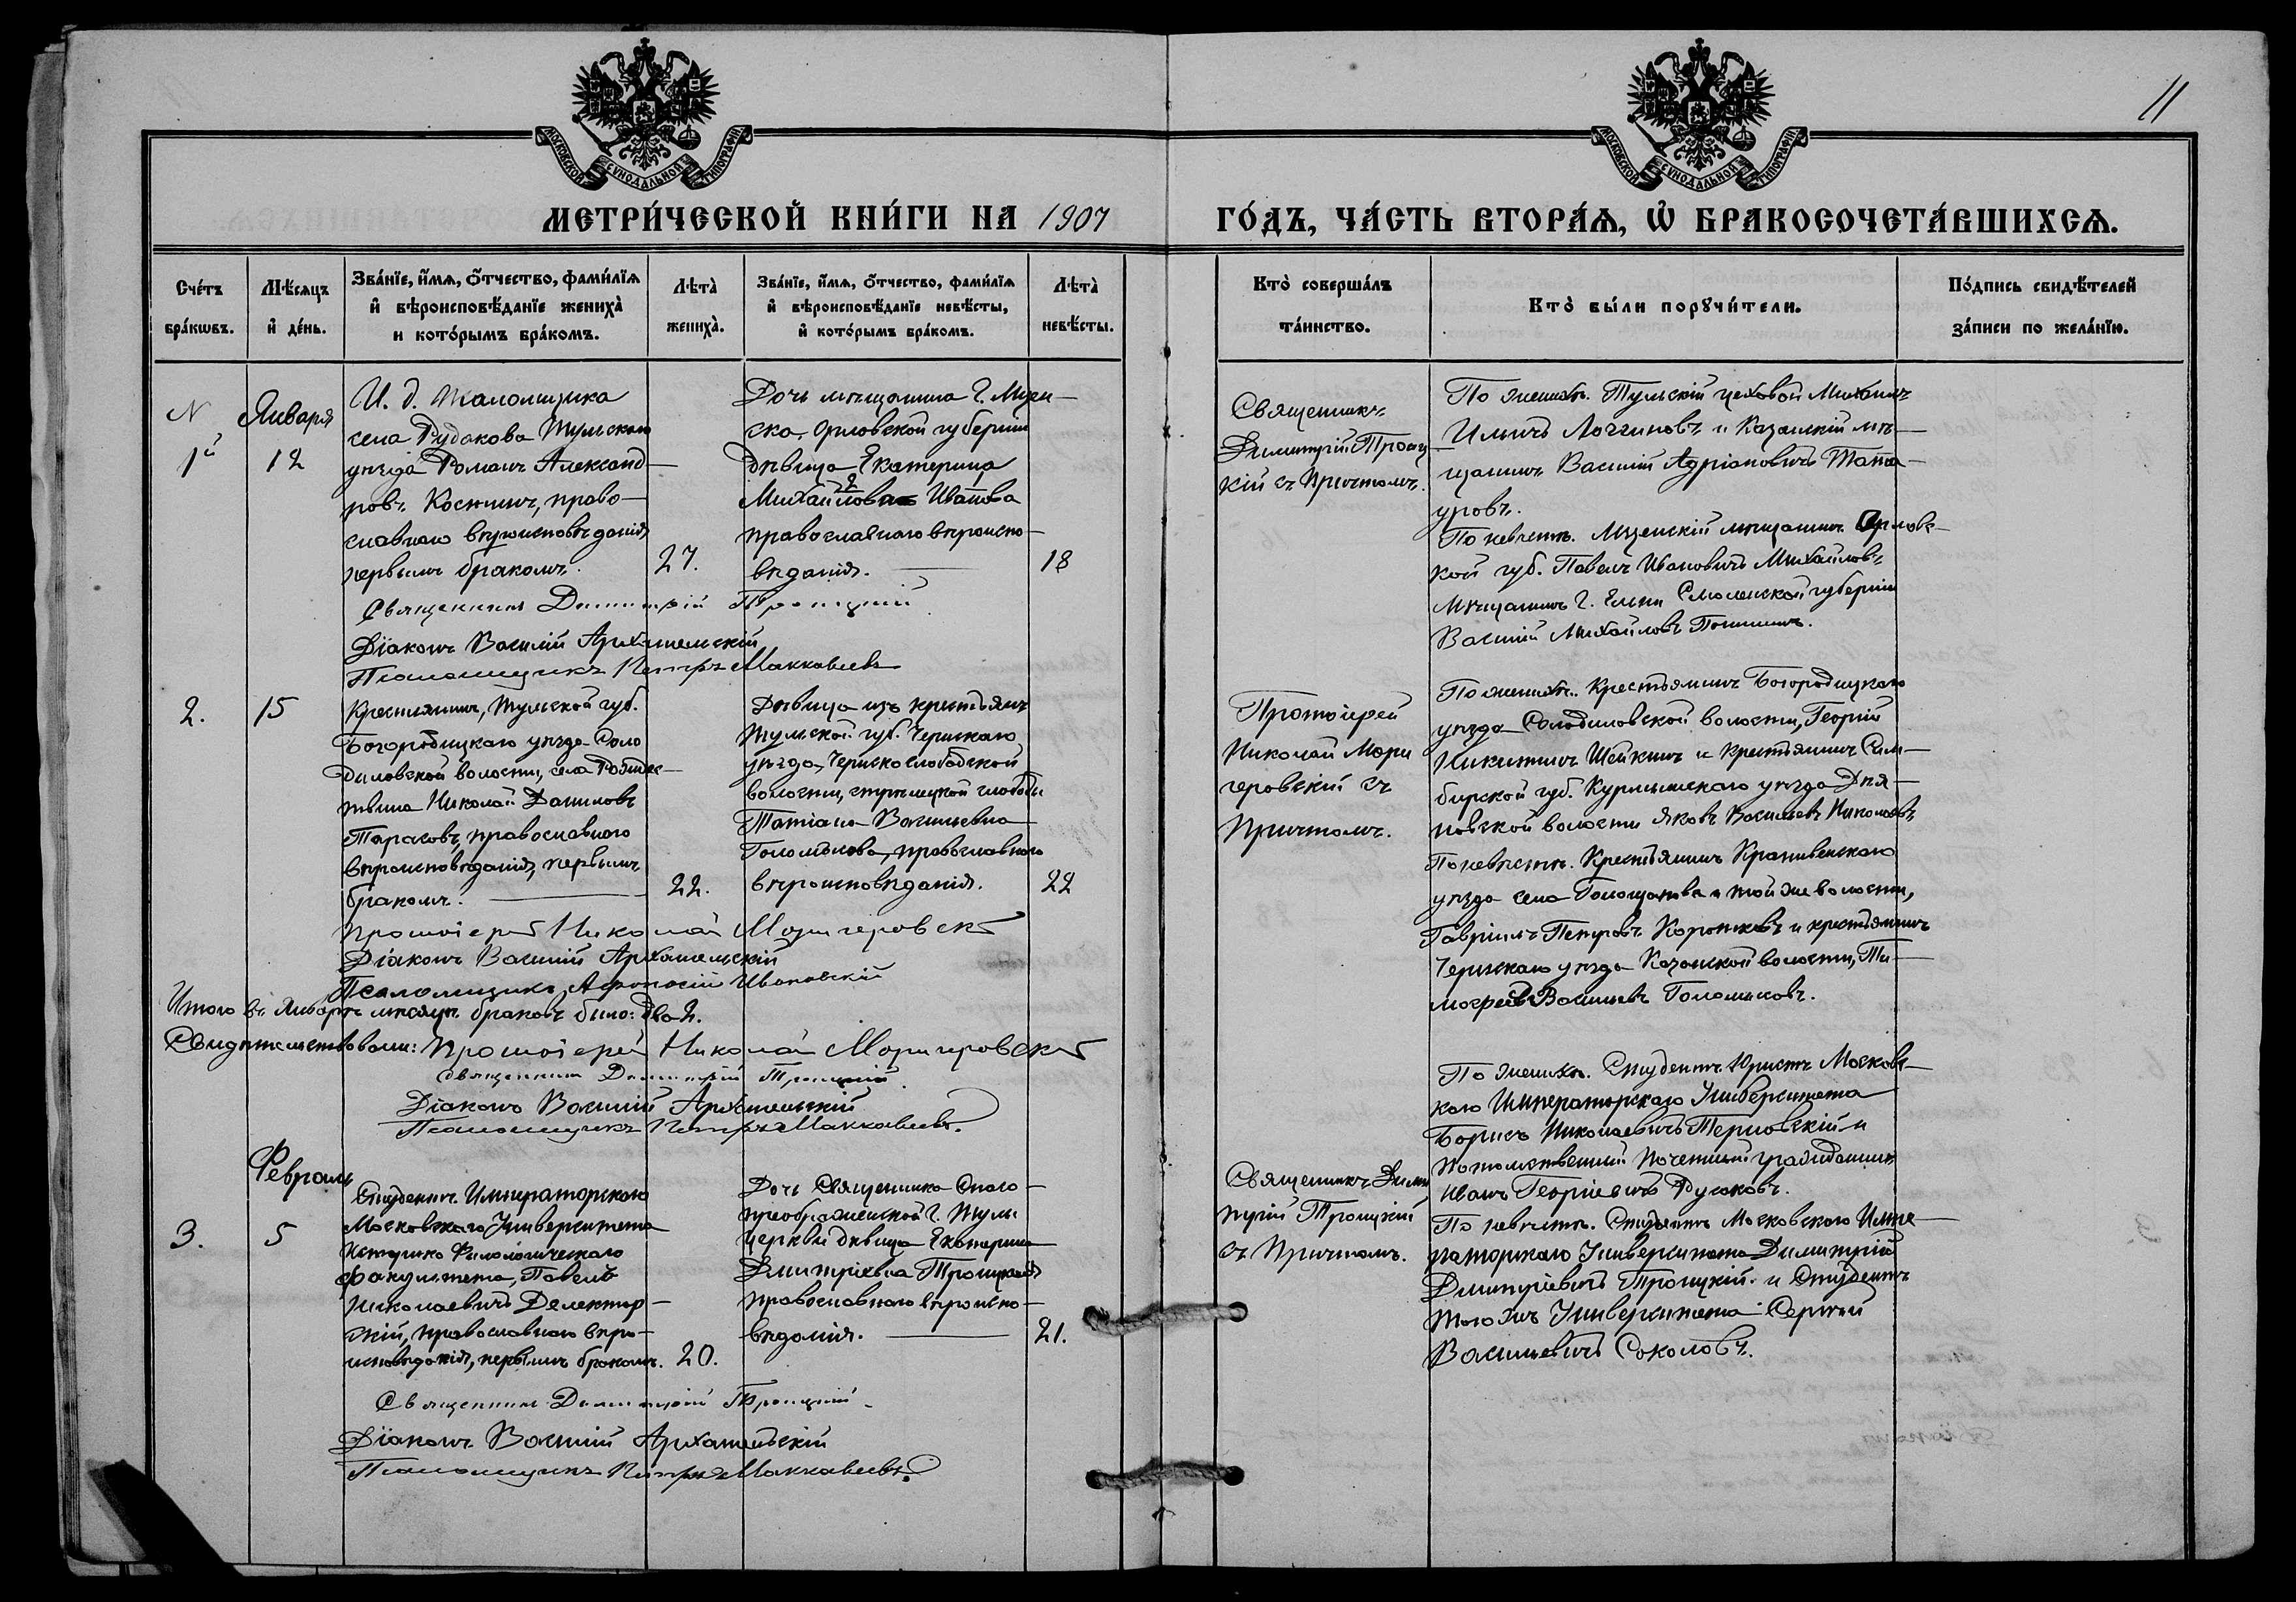 11
МОСКОВСКОЙ СѴНОДАЛЬНОЙ ТИПОГРАФІИ
МОСКОВСКОЙ СѴНОДАЛЬНОЙ ТИПОГРАФІИ
МЕТРИ́ЧЕСКОЙ КНИ́ГИ НА 1907 ГО́ДЪ, ЧА́СТЬ ВТОРА́Ѧ, Ѡ҆ БРАКОСОЧЕТА́ВШИХСѦ.
Сче́тъ бра́кѡвъ.
Мѣ́сѧцъ и҆ де́нь.
Зва́нїе, и҆́мѧ, ѻ҆́тчество, фами́лїѧ
и҆ вѣроисповѣ́данїе жениха̀
и кото́рымъ бра́комъ.
Лѣта̀ жениха̀.
Зва́нїе, и҆́мѧ, ѻ҆́тчество, фами́лїѧ
и҆ вѣроисповѣ́данїе невѣ́сты,
и҆ кото́рымъ бра́комъ.
Лѣта̀ невѣ́сты.
Кто̀ соверша́лъ та́инство.
Кто̀ бы́ли порꙋчи́тели.
По́дпись свидѣ́телей
за́писи по жела́нїю.
N 1й
Января 12
И. д. Псаломщика
села Рудакова Тульскаго
уѣзда Романъ Александ-
ровъ Косминъ, право-
славнаго вѣроисповѣданія
первымъ бракомъ.
27.
Дочь мѣщанина г. Мцен-
ска, Орловской губерніи
дѣвица Екатерина
Михайлова Иванова
православнаго вѣроиспо-
вѣданія.
18
Священникъ
Димитрій Троиц-
кій съ причтомъ.
По женихѣ. Тульскій цеховой Михаилъ
Ильичъ Логгиновъ и Казанскій мѣ-
щанинъ Василій Адріановичъ
уровъ.
По невѣстѣ. Мценскій мѣщанинъ Орловс-
кой губ. Павелъ Ивановичъ Михайловъ
Мѣщанинъ г. Ельни Смоленской губерніи
Василій Михайловъ
Священникъ Димитрій Троицкій
Діаконъ Василій Архангельскій
Псаломщикъ Петръ Маккавеевъ
2.
15
Крестьянинъ, Тульской губ.
Богородицкаго уѣзда Соло
диловской волости, села Рождес-
твина Николай Даниловъ
Тарасовъ, православнаго
вѣроисповѣданія, первымъ
бракомъ.
22.
Дѣвица изъ крестьянъ
Тульской губ. Чернскаго
уѣзда, Чернскослободской
волости, стрѣлецкой слободы
Татіана Васильевна
Голомыкова, православнаго
вѣроисповѣданія.
22
Протоіерей
Николай Мори
геровскій съ
Причтомъ.
По женихѣ. Крестьянинъ Богородицкаго
уѣзда Солодиловской волости, Георгій
Никитинъ Шейкинъ и крестьянинъ Сим-
бирской губ. Курмышскаго уѣзда
новской волости Яковъ Васильевъ Николаевъ
По невѣстѣ. Крестьянинъ Крапивенскаго
уѣзда села Голощапова той же волости,
Гавріилъ Петровъ Коротковъ и крестьянинъ
Чернскаго уѣзда волости, Ти-
мофеевъ Васильевъ Голомыковъ.
Протоіерей Николай Моригеровскій
Діаконъ Василій Архангельскій
Псаломщикъ Афонасій Ивановскій
Итого въ Январѣ мѣсяцѣ браковъ было: два 2.
Свидѣтельствовали: Протоіерей Николай Моригеровскій
Священникъ Димитрій Троицкій
Діаконъ Василій Архангельскій
Псаломщикъ Петръ Маккавеевъ.
3.
Февраль 5
Студентъ Императорскаго
Московскаго Университета
Историко Филологическаго
факультета, Павелъ
Николаевичъ Делектор-
скій, православнаго вѣро-
исповѣданія, первымъ бракомъ.
20.
Дочь Священника Спасо-
преображенской г. Тулы
церкви дѣвица Екатерина
Дмитріевна Троицкая
православнаго вѣроиспо-
вѣданія.
21.
Священникъ Дими
трій Троицкій
съ Причтомъ.
По женихѣ. Студентъ Юристъ Московс-
каго Императорскаго Университета
Борисъ Николаевичъ Терновскій и
потомственный почетный гражданинъ
Иванъ Георгіевичъ Русаковъ.
По невѣстѣ. Студентъ Московскаго Импе-
раторскаго Университета Димитрій
Дмитріевичъ Троицкій и Студентъ
того жъ Университета Сергѣй
Васильевичъ Соколовъ.
Священникъ Димитрій Троицкій.
Діаконъ Василій Архангельскій
Псаломщикъ Петръ Маккавеевъ.